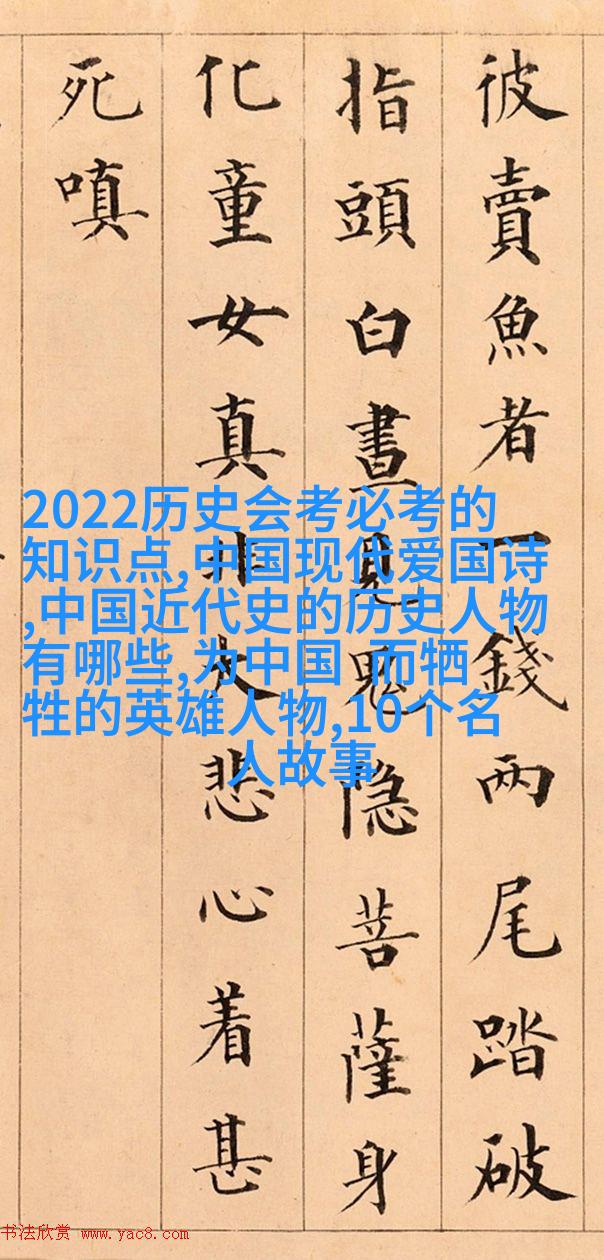 彼賣魚者一錢两尾踏破
指頭白晝見鬼隐菩薩身
化童女真非大悲心着甚
死嗔
2022历史会考必考的
知识点,中国现代爱国诗
,中国近代史的历史人物
有哪些,为中国 而牺
牲的英雄人物,10个名
人故事
书法欣赏 www.yac8.com